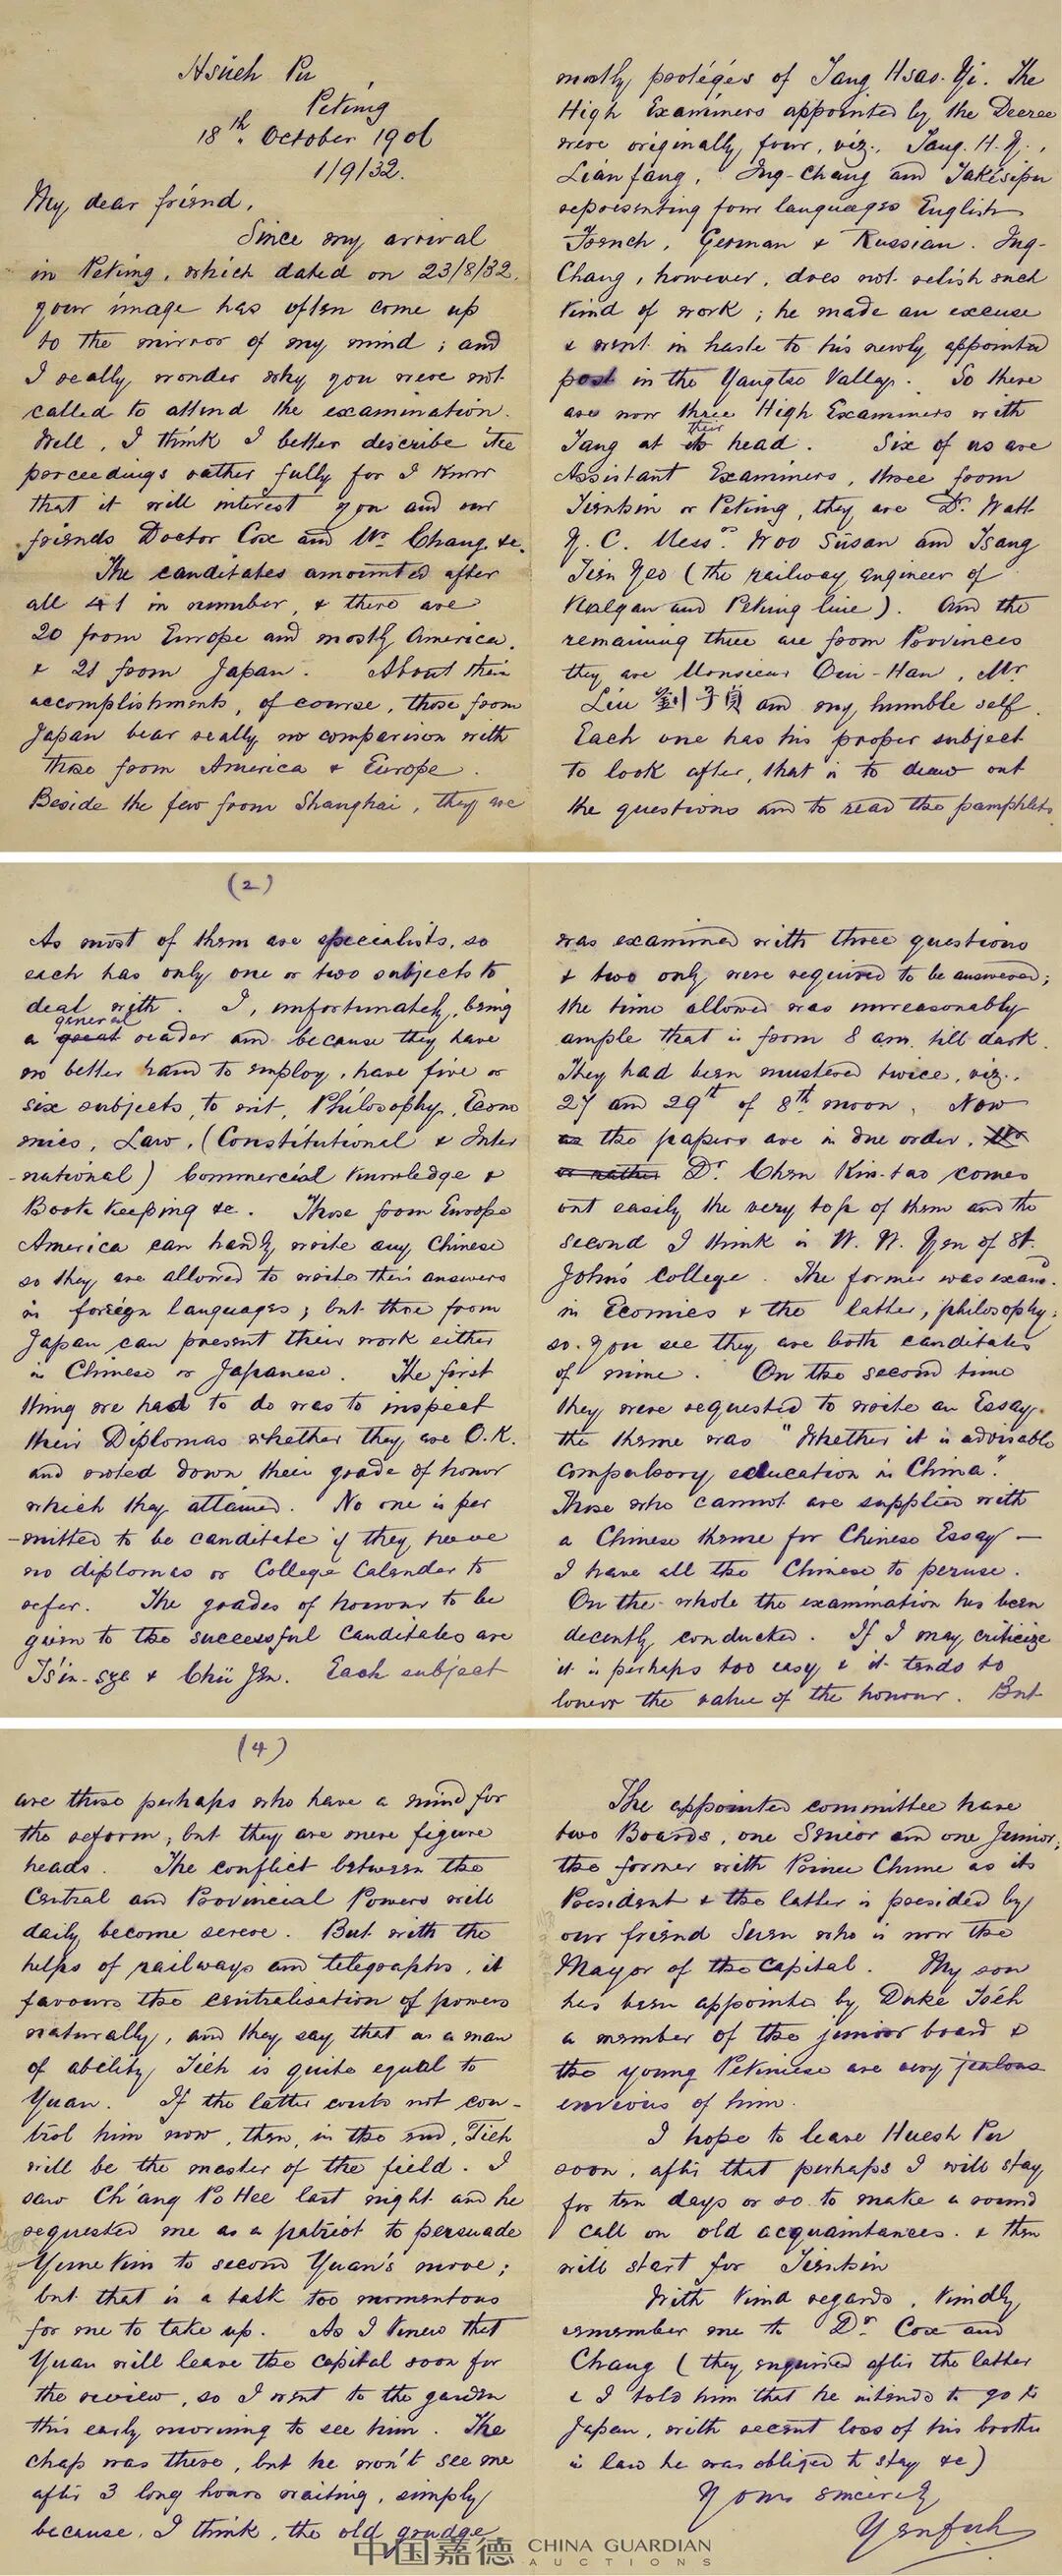 Hsüeh Pu
Peking
18th October 1906
1/9/32.
My dear friend,
Since my arrival
in Peking, which dated on 23/8/32.
your image has often come up
to the mirror of my mind; and
I really wonder why you were not
called to attend the examination.
Well, I think I better describe the
porceedings rather fully for I know
that it will interest you and our
friends Doctor Cox and Mr Chang &c.
The canditates amounted after
all 41 in number, & there are
20 from Europe and mostly America.
& 21 from Japan. About their
accomplishments, of course, those from
Japan bear really no comparison with
those from America & Europe.
Beside the few from Shanghai, they are
mostly protégés of Tang Hsao-Yi. The
High Examiners appointed by the Decree
were originally four, viz., Tang. H. Y.,
Lianfang, Ing-Chang and Takesipu
representing four languages English
French, German & Russian. Ing-
Chang, however, does not relish such
kind of work; he made an excuse
& went in haste to his newly appointed
post in the Yangtse Valley. So there
are now three High Examiners with
Tang at their head. Six of us are
Assistant Examiners, three from
Tientsin or Peking, they are Dr. Watt
Y. C. Messrs. Woo Süsan and Tsang
Tien Yeo (the railway engineer of
Kalgan and Peking line). And the
remaining three are from Provinces
they are Monsieur Ou-Han, Mr
Liu 劉子貞 and my humble self.
Each one has his proper subject
to look after, that is to draw out
the questions and to read the pamphlets.
(2)
As most of them are specialists, so
each has only one or two subjects to
deal with. I, unfortunately, being
a great general reader and because they have
no better hand to employ, have five or
six subjects, to wit, Philosophy, Econo
mics, Law, (Constitutional & Inter
-national) Commercial Knowledge &
Book Keeping &c. Those from Europe
America can hardly write any Chinese
so they are allowed to write their answers
in foreign languages; but those from
Japan can present their work either
in Chinese or Japanese. The first
thing we had to do was to inspect
their Diplomas whether they are O.K.
and noted down their grade of honor
which they attained. No one is per
-mitted to be canditate if they have
no diplomas or College Calender to
refer. The grades of honour to be
given to the successful Canditates are
Tsin-sze & Chü Jen. Each subject
was examined with three questions
& two only were required to be answered;
the time allowed was unreasonably
ample that is from 8 am. till dark.
They had been mustered twice, viz.,
27 and 29th of 8th moon. Now
as the papers are in due order,
or rather Dr. Chen Kin-tao comes
out easily the very top of them and the
second I think is W. W. Yen of St.
John's College. The former was examd.
in Ecomics & the latter, philosophy;
so you see they are both canditates
of mine. On the second time
they were requested to write an Essay.
the theme was "Whether it is advisable
compulsory education in China".
Those who cannot are supplied with
a Chinese theme for Chinese Essay —
I have all the Chinese to peruse.
On the whole the examination has been
decently conducted. If I may criticize
it is perhaps too easy & it tends to
lower the value of the honour. But
(4)
are those perhaps who have a mind for
the reform, but they are mere figure
heads. The conflict between the
Central and Provincial Powers will
daily become severe. But with the
helps of railways and telegraphs, it
favours the centralisation of powers
naturally, and they say that as a man
of ability, Tieh is quite equal to
Yuan. If the latter could not con-
trol him now, then, in the end, Tieh
will be the master of the field. I
saw Ch'ang Po Hee last night and he
requested me as a patriot to persuade
Yume Kim to second Yuan's move;
but that is a task too momentous
for me to take up. As I knew that
Yuan will leave the capital soon for
the review, so I went to the garden
this early morning to see him. The
chap was there, but he won't see me
after 3 long hours waiting, simply
because, I think, the old grudge
The appointed committee have
two Boards, one Senior and one Junior;
the former with Prince Chune as its
President & the latter is presided by
our friend Suen who is now the
Mayor of the Capital. My son
has been appointed by Duke Tseh
a member of the junior board &
the young Pekinese are very jealous
envious of him.
I hope to leave Huesh Pu
soon, after that perhaps I will stay
for ten days or so to make a round
call on old acquaintances. & then
will start for Tientsin
With kind regards. Kindly
remember me to Dr. Cox and
Chang (they enquired after the latter
& I told him that he intends to go to
Japan, with recent loss of his brother
in law he was obliged to stay &c)
Yours sincerely
Yenfuh
中国嘉德 CHINA GUARDIAN
AUCTIONS